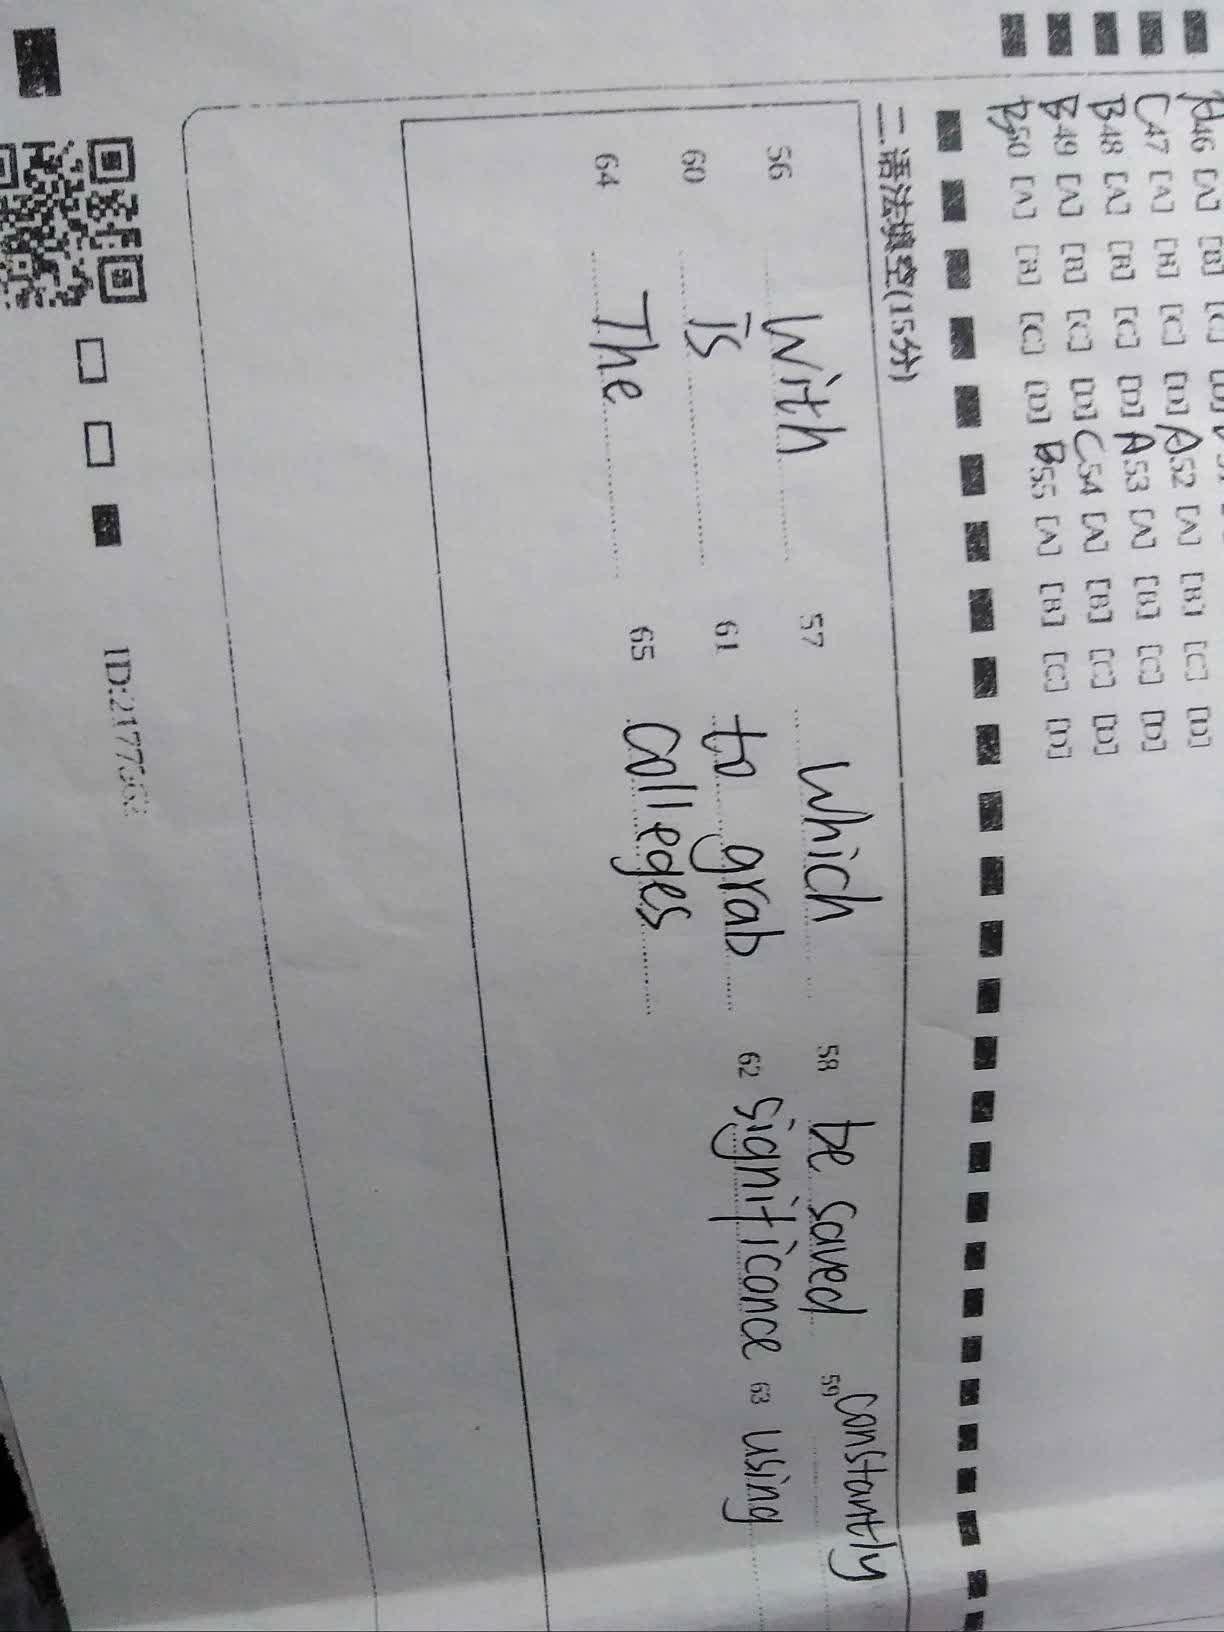 46 [A] [B] [C] [D]
C 47 [A] [B] [C] [D] A 52 [A] [B] [C] [D]
B 48 [A] [B] [C] [D] A 53 [A] [B] [C] [D]
B 49 [A] [B] [C] [D] C 54 [A] [B] [C] [D]
B 50 [A] [B] [C] [D] B 55 [A] [B] [C] [D]
二.语法填空(15分)
56 with 57 which 58 be saved 59 constantly
60 is 61 to grab 62 significance 63 using
64 The 65 colleges